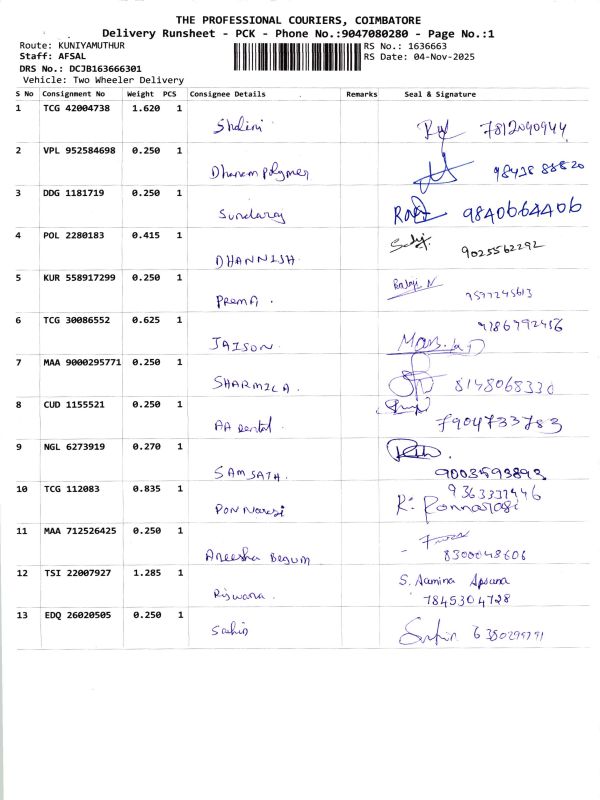 THE PROFESSIONAL COURIERS, COIMBATORE
Delivery Runsheet - PCK - Phone No.:9047080280 - Page No.:1
Route: KUNIYAMUTHUR RS No.: 1636663
Staff: AFSAL RS Date: 04-Nov-2025
DRS No.: DCJB163666301
Vehicle: Two Wheeler Delivery
S No Consignment No Weight PCS Consignee Details Remarks Seal & Signature
1 TCG 42004738 1.620 1
Shalini. 7812040944
2 VPL 952584698 0.250 1
Dhanam Polymer
3 DDG 1181719 0.250 1
Sundaraj 9840664406
4 POL 2280183 0.415 1
DHANNISH. 9025562292
5 KUR 558917299 0.250 1
Balaji N
PREMA.
6 TCG 30086552 0.625 1
JAISON.
7 MAA 9000295771 0.250 1
SHARMILA. 8148068330
8 CUD 1155521 0.250 1
AA Dental. 7904733783
9 NGL 6273919 0.270 1
SAMSATH. 9003593893
10 TCG 112083 0.835 1
PONNarasi K. Ponnarasi
11 MAA 712526425 0.250 1
Aneesha Begum 8300048606
12 TSI 22007927 1.285 1
S. Aamina Apsana
Riswana. 7845304728
13 EDQ 26020505 0.250 1
Sabin